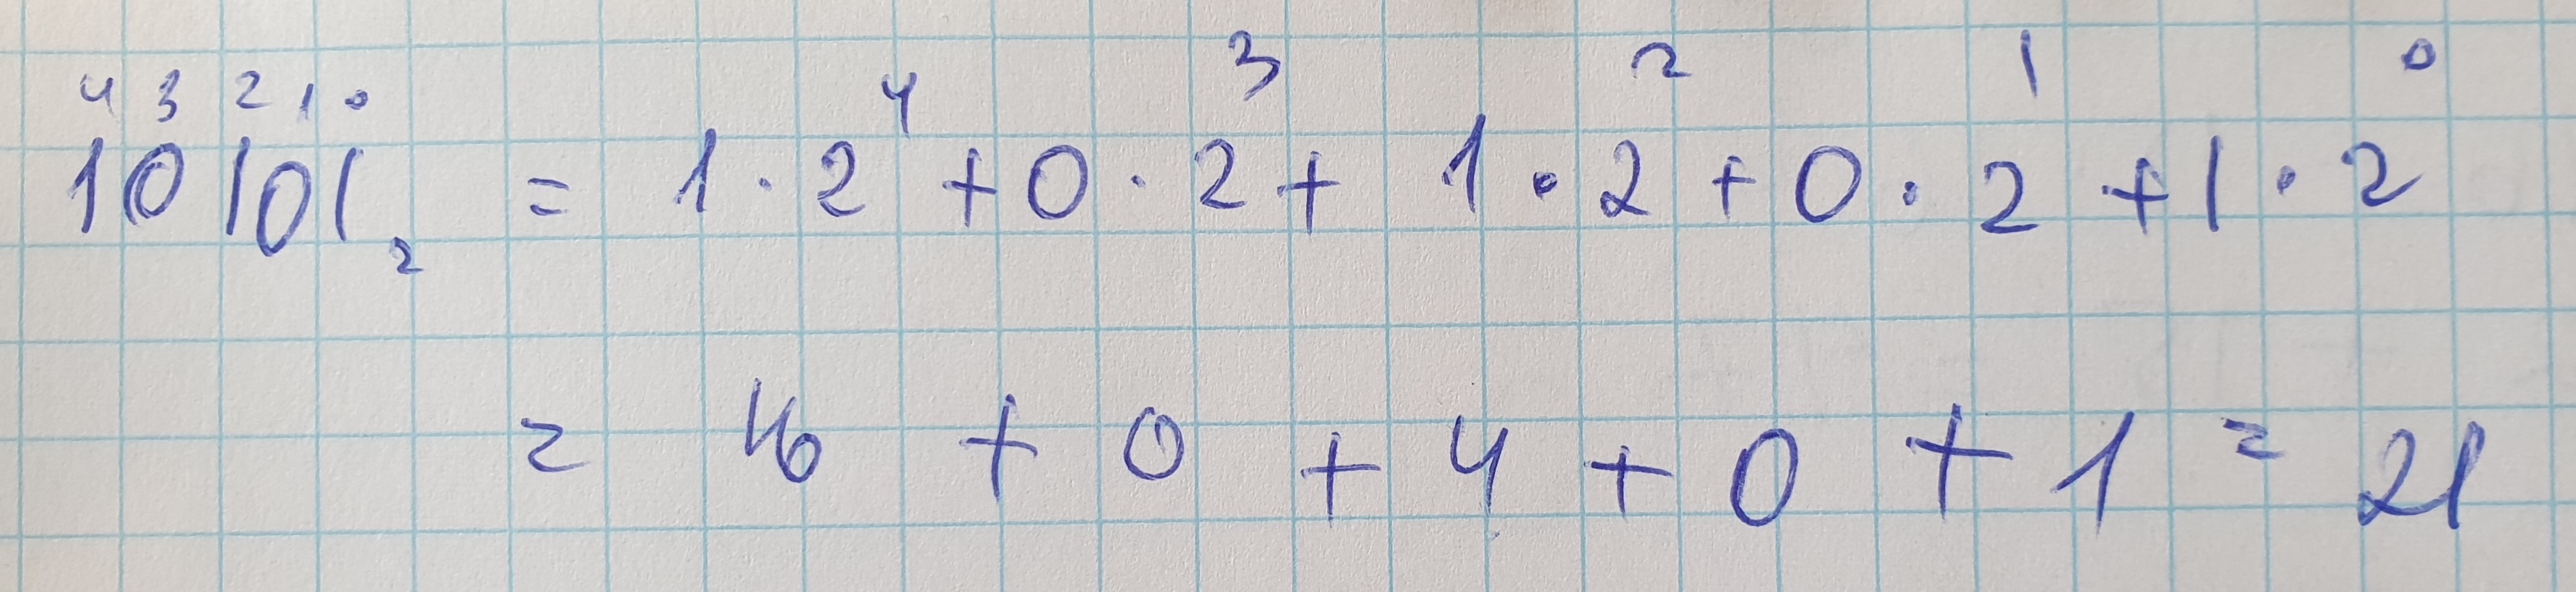 4 3 2 1 0
10101₂ = 1·2⁴+0·2³+ 1·2²+0·2¹+1·2⁰
= 16 + 0 + 4 + 0 + 1 = 21